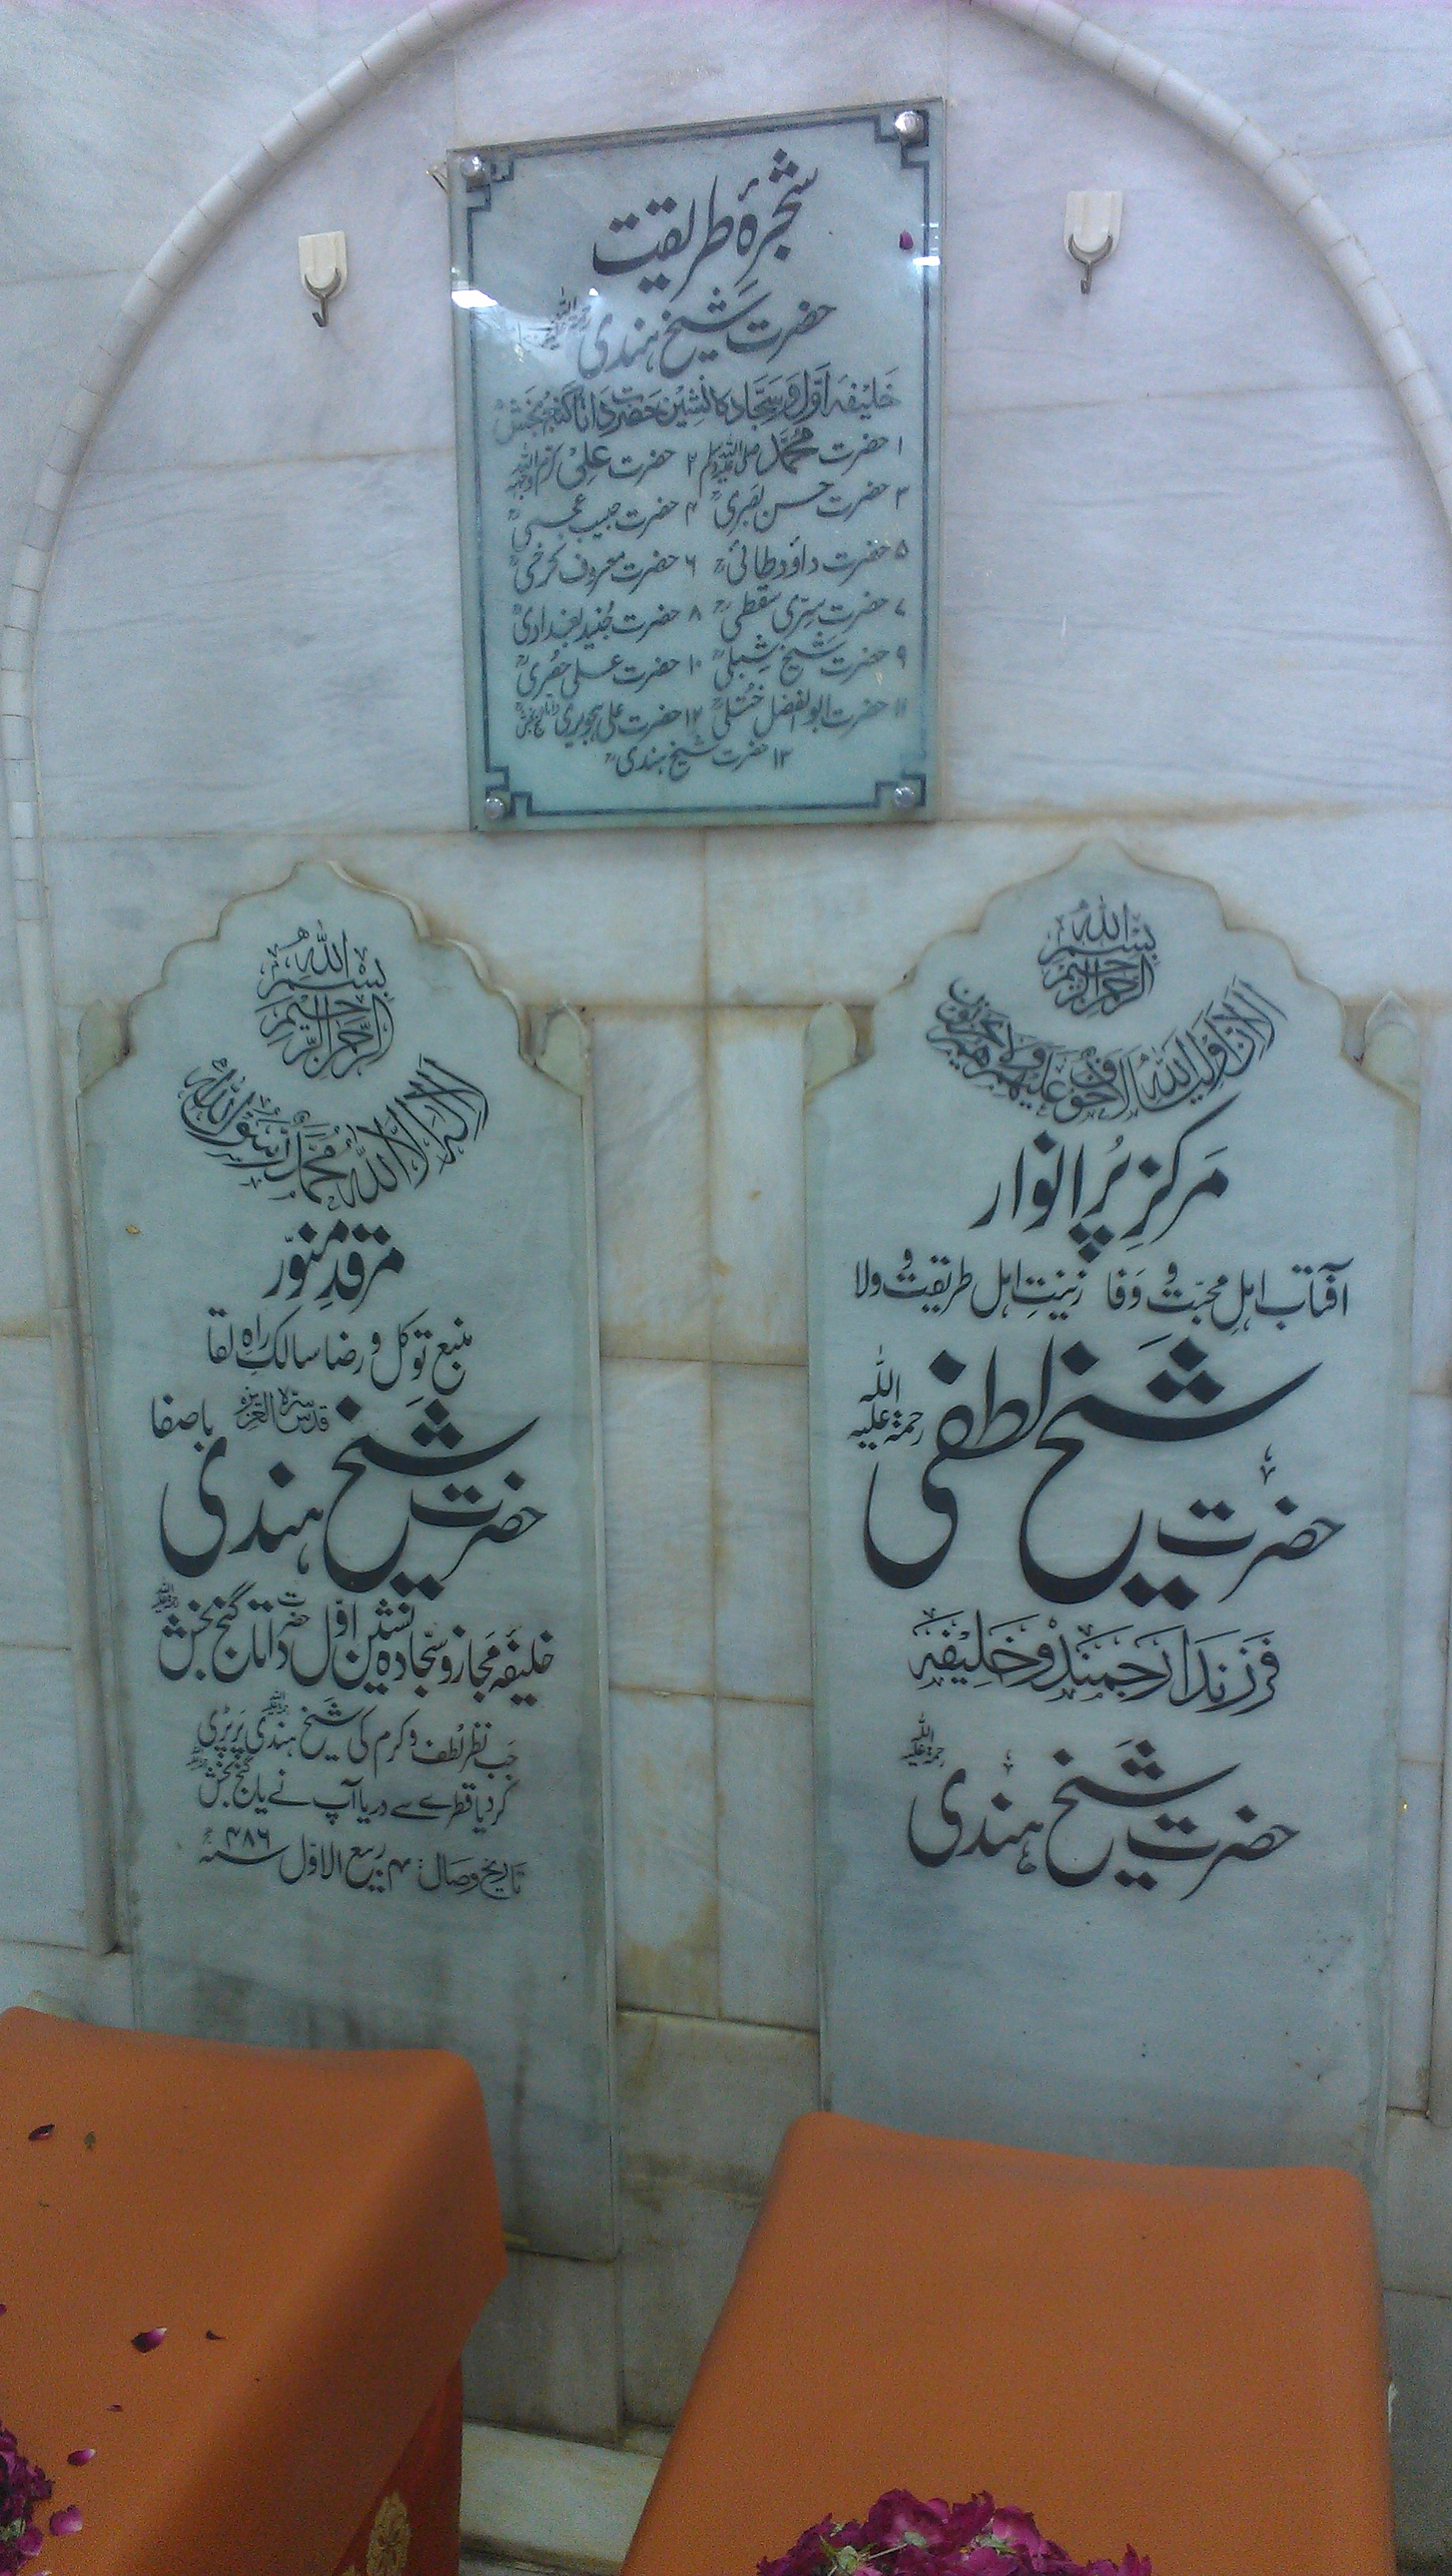 شجرۂ طریقت
حضرت شیخ ہندی رحمۃ اللہ علیہ
خلیفہ اول و سجادہ نشین حضرت داتا گنج بخشؒ
۱ حضرت محمد صلی اللہ علیہ وسلم ۲ حضرت علی کرم اللہ وجہہ
۳ حضرت حسن بصریؒ ۴ حضرت حبیب عجمیؒ
۵ حضرت داؤد طائیؒ ۶ حضرت معروف کرخیؒ
۷ حضرت سِرّی سقطیؒ ۸ حضرت جُنید بغدادیؒ
۹ حضرت شیخ شِبلیؒ ۱۰ حضرت علی حصُریؒ
۱۱ حضرت ابوالفضل ختُلیؒ ۱۲ حضرت علی ہجویری داتا گنج بخشؒ
۱۳ حضرت شیخ ہندیؒ
بسم اللہ الرحمن الرحیم
الا ان اولیاء اللہ لا خوف علیھم ولا ھم یحزنون
مَرکزِ پُر انوار
آفتابِ اہلِ محبّت و وَفا زینتِ اہلِ طریقت و ولا
حضرت شیخ لطفی رحمۃ اللہ علیہ
فرزند ارجمند و خلیفہ
حضرت شیخ ہندی رحمۃ اللہ علیہ
بسم اللہ الرحمن الرحیم
لا الہ الا اللہ محمد رسول اللہ
مرقدِ منوّر
منبع توکّل و رضا سالکِ راہِ لقا
باصفا
حضرت شیخ ہندی قدس سرہ العزیز
خلیفۂ مَجاز و سجّادہ نشین اوّل حضرت داتا گنج بخش رحمۃ اللہ علیہ
جَب نظر لُطف و کرم کی شیخ ہندی پَر پڑی
کر دیا قطرے سے دریا آپ نے یا گنج بخش
تاریخِ وصال: ۴ ربیع الاوّل سنہ ۴۸۶ھ